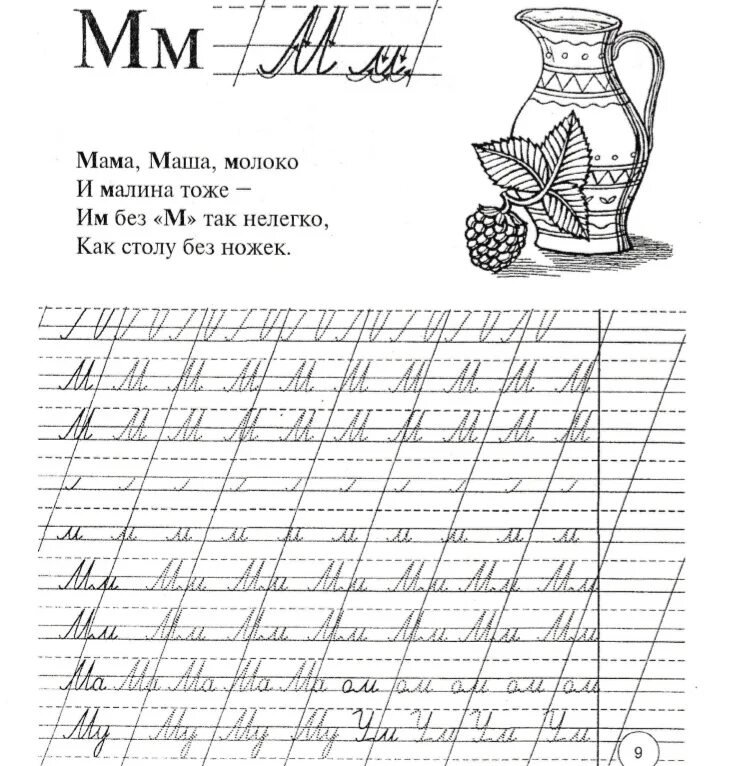 Мм М м
Мама, Маша, молоко
И малина тоже —
Им без «М» так нелегко,
Как столу без ножек.
М М М М М М М М М М
М М М М М М М М М М
м м м м м м м м м м
Мм Мм Мм Мм Мм Мм Мм
Мм Мм Мм Мм Мм Мм Мм
Ма Ма Ма Ма Ма ом ом ом ом ом
Му Му Му Му Ум Ум Ум Ум
9